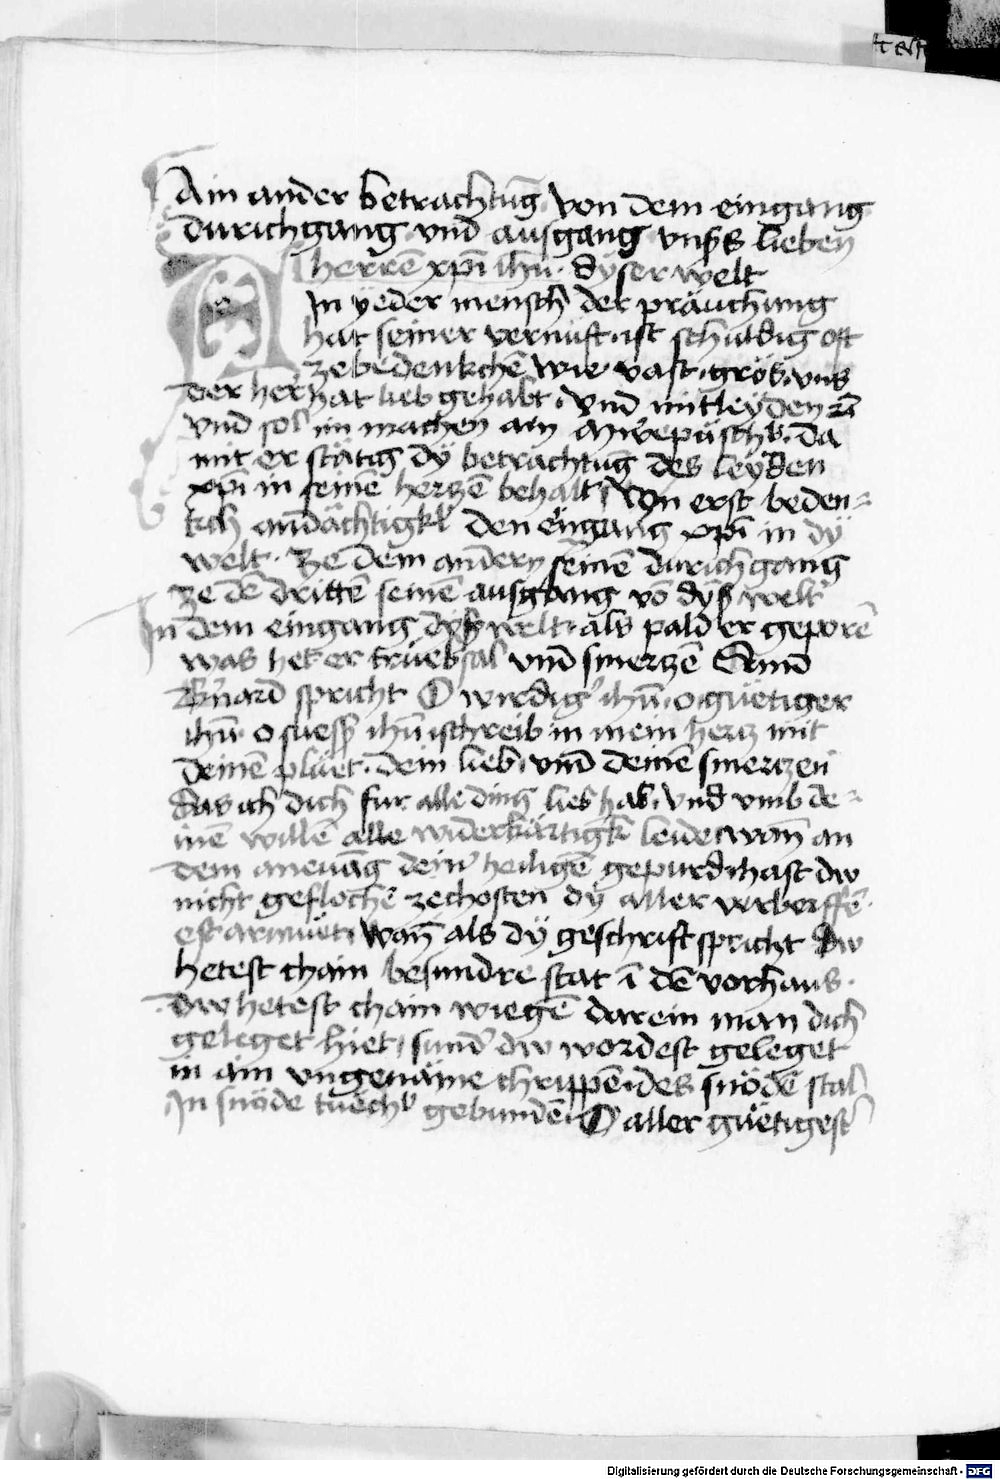 Ain ander betrachtūg von dem eingang
durichgang vnd ausgang vnsers lieben
herrē xp̄i ih̄u dyser welt
Ain yeder mensch der präuchung
hat seiner vernūft ist schuldig oft
zebedenkchē wie vast gros vns
der her hat lieb gehabt vnd mitleyden
vnd sol im machen ain da
mit er stätig dy betrachtūg des leyden
xp̄i in seinē hertzē behalt Von erst beden=
kch andächtigkl den eingang xp̄i in dÿ
welt ze dem andern seinē durichgang
ze dē drittē seinē ausgang vō dyser welt
In dem eingang dyser welt als pald er geporē
was het er truebsal vnd smertzē Sand
Bernard spricht O wirdiger ih̄u o güetiger
ih̄u o suesser ih̄u schreib in mein hertz mit
deinē plüet dein lieb vnd deinē smertzen
das ich dich fur alle ding lieb hab vnd vmb de=
inē willē alle widerbärtigkt leide wan an
dem anevāg deiner heiligē gepurd hast dw
nicht geflochē zechosten dy aller verborffē
est armüet wan als dÿ geschrift spricht dw
hetest chain besundre stat ī dē vorhaus
dw hetest chain wiegē darein man dich
geleget hiet sunder dw wordest geleget
in ain vngenäme chrippē des snödē stal
In snöde tuecher gebundē O aller güetigester
Digitalisierung gefördert durch die Deutsche Forschungsgemeinschaft - DFG